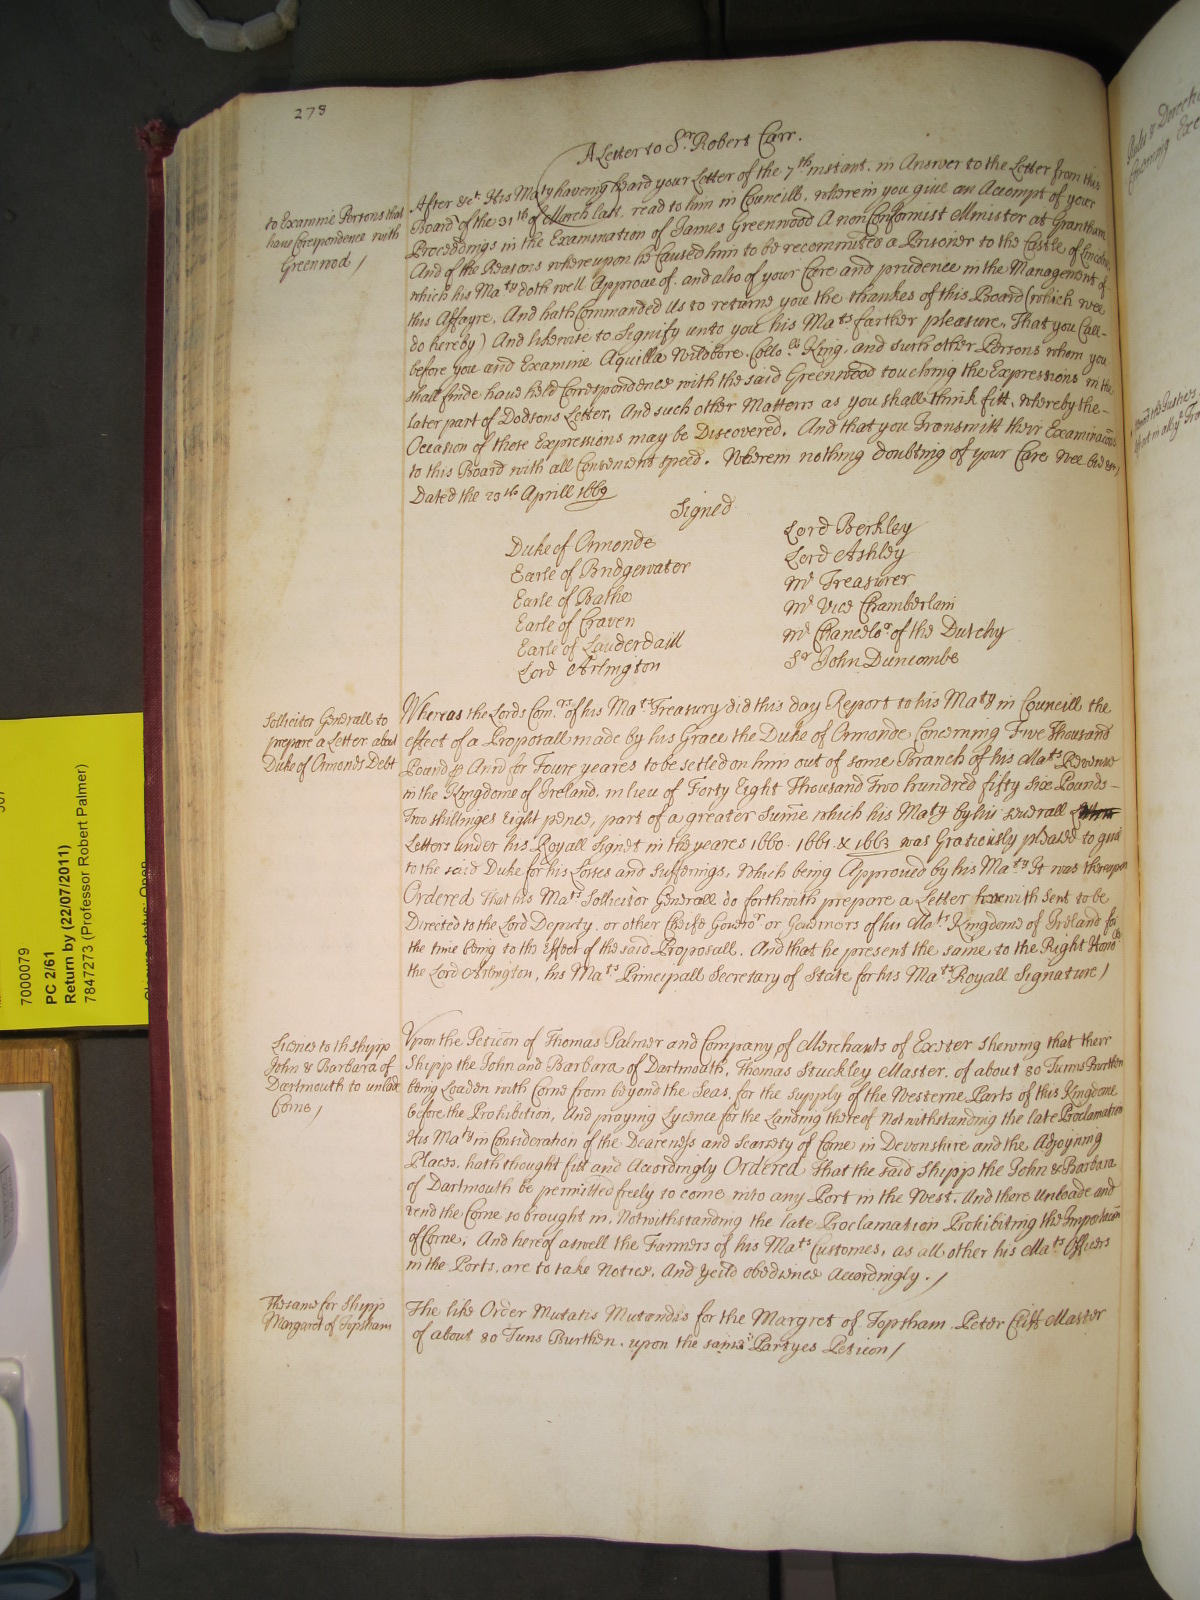 278
A Letter to Sr. Robert Carr.
to Examine Persons that
haue Corespondence with
Greenwod /
After &ct. His Maty haveing heard your Letter of the 7th instant. in Answer to the Letter from this
Board of the 31th of March last. read to him in Councill, wherein you give an Accompt of your
Proceedings in the Examination of James Greenwood A nonConformist Minister at Grantham
And of the Reasons whereupon he Caused him to be recommitted a Prisoner to the Castle of Lincolne
which his Maty doth well Approve of. and also of your Care and prudence in the Management of
this Affayre, And hath Commanded Us to returne you the thankes of this Board (which wee
do hereby) And likewise to Signify unto you his Mats farther pleasure, That you Call-
before you and Examine Aquilla Wildbore. Collo. King, and such other Persons whom you
shall finde haue held Correspondence with the said Greenwood touching the Expressions in the
later part of Dodsons Letter, And such other Matters as you shall think fitt, whereby the-
Occasion of those Expressions may be Discovered. And that you Transmitt their Examinacons
to this Board with all Convenient speed. Wherein nothing doubting of your Care Wee bid &c /
Dated the 20th Aprill 1669
Signed
Duke of Ormonde
Earle of Bridgewater
Earle of Bathe
Earle of Craven
Earle of Lauderdaill
Lord Arlington
Lord Berkley
Lord Ashley
Mr Treasurer
Mr Vice Chamberlain
Mr Chancelor of the Dutchy
Sr John Duncombe
Sollicitor Generall to
prepare a Letter about
Duke of Ormonds Debt
Whereas the Lords Comrs. of his Mats Treasury did this day Report to his Maty in Councill the
effect of a Proposall made by his Grace the Duke of Ormonde Concerning Five Thousand
Pound p Ann for Foure yeares to be setled on him out of some Branch of his Mats Revenue
in the Kingdome of Ireland, in lieu of Forty Eight Thousand Two hundred fifty six Pounds-
Two shillinges Eight pence, part of a greater Sume which his Maty by his severall
Letters under his Royall Signet in the yeares 1660. 1661. & 1663 was Gratiously pleased to give
to the said Duke for his Losses and Sufferings, Which being Approved by his Maty It was thereupon
Ordered That his Mats Sollicitor Generall do forthwith prepare a Letter herewith sent to be
Directed to the Lord Deputy, or other Cheife Governr or Governors of his Mats Kingdome of Ireland for
the time being to the Effect of the said Proposall. And that he present the same to the Right Honoble
the Lord Arlington, his Mats Principall Secretary of State for his Mats Royall Signature /
Licence to th shipp
John & Barbara of
Dartmouth to unlade
Corne /
Upon the Peticon of Thomas Palmer and Company of Merchants of Exeter shewing that their
Shipp the John and Barbara of Dartmouth, Thomas Stuckley Master. of about 80 Tunns Burthen
being Loaden with Corne from beyond the Seas, for the supply of the Westerne Parts of this Kingdome
before the Prohibition, And praying Lycence for the Landing thereof Notwithstanding the late Proclamation
His Maty in Consideration of the Dearenesse and Scarsety of Corne in Devonshire and the Adjoyning
Places, hath thought fitt and Accordingly Ordered That the said Shipp the John & Barbara
of Dartmouth be permitted freely to come into any Port in the West, And there Unloade and
vend the Corne so brought in, Notwithstanding the late Proclamation Prohibiting the Importacon
of Corne, And hereof aswell the Farmers of his Mats Customes, as all other his Mats Officers
in the Ports, are to take Notice, And Yeild obedience Accordingly. /
The same for Shipp
Margaret of Topsham
The like Order Mutatis Mutandis for the Margret of Topsham. Peter Cliff Master
of about 80 Tuns Burthen. upon the same Partyes Peticon /
7000079
PC 2/61
Return by (22/07/2011)
7847273 (Professor Robert Palmer)